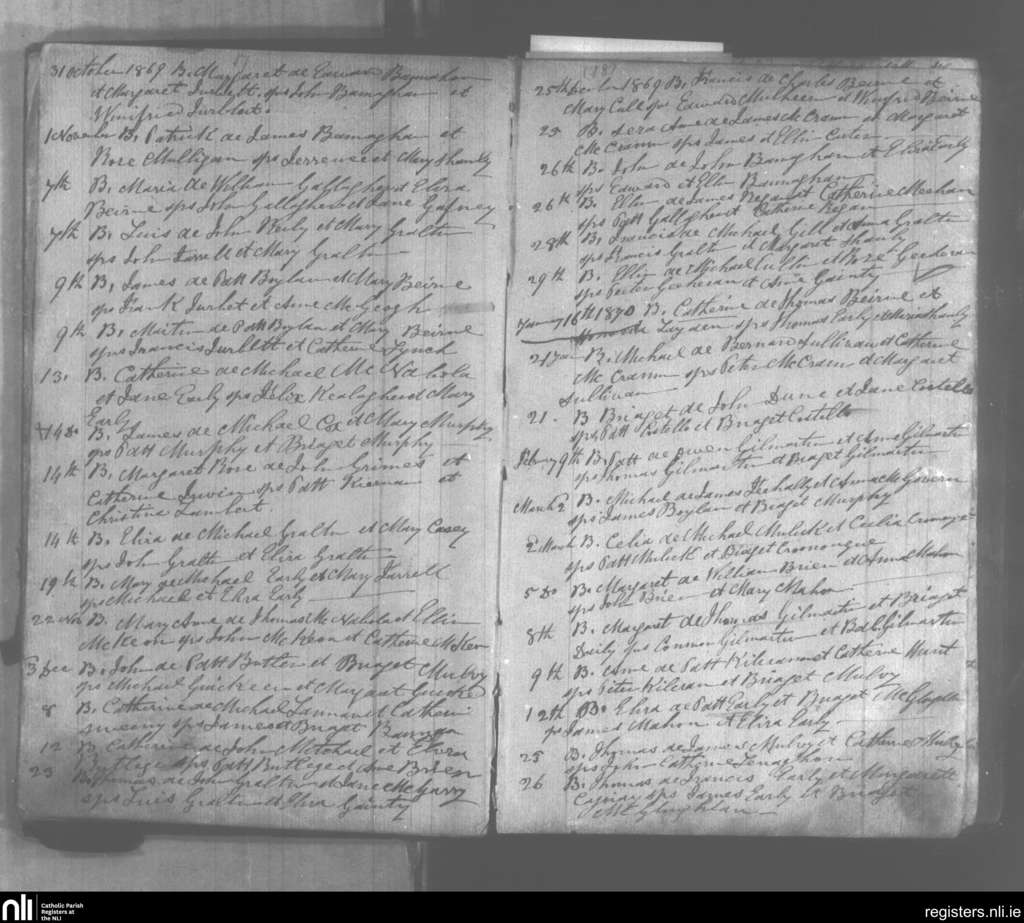 31 October 1869 B. Margaret de Edward
et Margaret Turbett. sps John Barnaghan et
Winifred Turbbet.
1 November B. Patrick de James Barnaghan et
Rose Mulligan sps Terrence et Mary Shanly
7th B. Maria de William Gallagher et Eliza
Beirne sps John Gallagher et Jane Gafney
7th B. Luis de John et Mary Gralton
sps John Farrell et Mary Gralton
9th B. James de Patt Boylan et Mary Beirne
sps Frank Turbet et Anne McGeogh
9th B. Martin de Patt Boylan et Mary Beirne
sps Francis Turbett et Catherine Lynch
13. B. Catherine de Michael McNabola
et Jane Early sps Felix et Mary
Early
14 do B. James de Michael Cox et Mary Murphy
sps Patt Murphy et Bridget Murphy
14th B. Margaret Rose de John Grimes et
Catherine Irwin sps Patt Kiernan et
Christina Lambert.
14th B. Eliza de Michael Gralton et Mary Casey
sps John Gralton et Eliza Gralton
19th B. Mary de Michael Early et Mary Farrell
sps Michael et Eliza Early
22 Nov B. Mary Anne de Thomas McNabola et Ellen
McKeon sps John McKeon et Catherine McKeon
3 Dec B. John de Patt Butler et Bridget Mulvey
sps Michael Guickeen et Margaret
8 B. Catherine de Michael et Catherine
sps James et Bridget
12 B. Catherine de John Mitchael et Eliza
Rutlege sps Patt Rutlege et Anne Brien
23 B. Thomas de John Gralton et Jane McGarry
sps Luis Gralton et Eliza Gaunty
(18)
25th December 1869 B. Francis de Charles Beirne et
Mary Call sps Edward Mulheern et Winifred Beirne
25 B. Sera Anne de James McCrann et Margaret
McCrann sps James et Ellen
26th B. John de John Barnaghan et Eliza Early
sps Edward et Ellen Barnaghan
26th B. Ellen de James Regan et Catherine Meehan
sps Patt Gallagher et Catherine Regan
28th B. Francis de Michael Gill et Anna Gralton
sps Francis Gralton et Margaret Shanly
29th B. Ellen de Michael Cullen et Rose Geeheran
sps Peter Geeheran et Anne Gaunty
January 16th 1870 B. Catherine de Thomas Beirne et
Honora Leyden sps Thomas Early et Maria Shanly
21 Jan B. Michael de Bernard Sullivan et Catherine
McCrann sps Peter McCrann et Margaret
Sullivan
21. B Bridget de John Dune et Jane Costello
sps Patt Costello et Bridget Costello
February 9th B. Patt de Owen Gilmartin et Anne Gilmartin
sps Thomas Gilmartin et Bridget Gilmartin
March 2 B. Michael de James et Anna McGovern
sps James Boylan et Bridget Murphy
2nd March B. Celia de Michael Mulick et Cecilia
sps Patt Mulick et Bridget
5 do B. Margaret de William Brien et Anna Mahon
sps John Brien et Mary Mahon
8th B. Margaret de Thomas Gilmartin et Bridget
Daily sps Connon Gilmartin et Gilmartin
9th B. Anne de Patt Kilrean et Catherine Hunt
sps Peter Kilrean et Bridget Mulvey
12th B. Eliza de Patt Early et Bridget
sps James Mahon et Eliza Early
25 B. Thomas de James Mulvey et Catherine
sps John Catherine Lenaghan
26 B. Thomas de Francis Early et Margarett
sps James Early et Bridget
McLoughlan
nli
Catholic Parish
Registers at
the NLI
registers.nli.ie